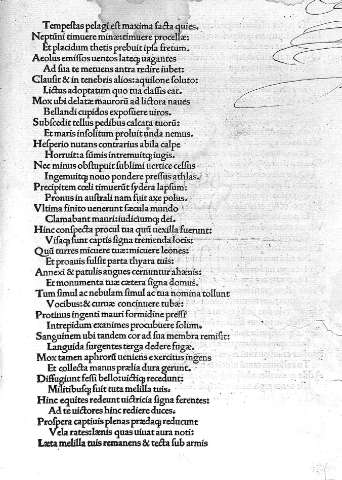 Tempestas pelagi est maxima facta quies.
Neptūni timuere minæ: timuere procellæ:
Et placidum thetis prebuit ipsa fretum.
Aeolus emissos uentos lateq; uagantes
Ad sua te metuens antra redire iubet:
Clausit & in tenebris alios: aquilone soluto:
Lictus adoptatum quo tua classis eat.
Mox ubi delatæ maurorū ad lictora naues
Bellandi cupidos exposuere uiros.
Subsedit tellus pedibus calcata tuorū:
Et maris insolitum proluit unda nemus.
Hesperio nutans contrarius abila calpe
Horruitta sūmis intremuitq; iugis.
Nec minus obstupuit sublimi uertice celsus
Ingemuitq; nouo pondere pressus athlas.
Precipitem cœli timuerūt sydera lapsum:
Pronus in australi nam fuit axe polus.
Vltima finito uenerunt sæcula mundo
Clamabant mauri: iudiciumq; dei.
Hinc conspecta procul tua quū uexilla fuerunt:
Visaq; sunt captis signa tremenda locis:
Quū turres micuere tuæ: micuere leones:
Et proauis fulsit parta thyara tuis:
Annexi & patulis angues cernuntur ahænis:
Et monumenta tuæ cætera signa domus.
Tum simul ac nebulam simul ac tua nomina tollunt
Vocibus: & curuæ concinuere tubæ:
Protinus ingenti mauri formidine pressi
Intrepidum exanimes procubuere solum.
Sanguinem ubi tandem cor ad sua membra remisit:
Languida surgentes terga dedere fugæ.
Mox tamen aphrorū ueniens exercitus ingens
Et collecta manus prælia dura gerunt.
Diffugiunt fessi bello: uictiq; recedunt:
Militibusq; fuit tuta melilla tuis.
Hinc equites redeunt uictricia signa ferentes:
Ad te uictores hinc rediere duces.
Prospera captiuis plenas prædaq; reducunt
Vela rates: lænis quas uiuat aura noti:
Læta melilla tuis remanens & tecta sub armis